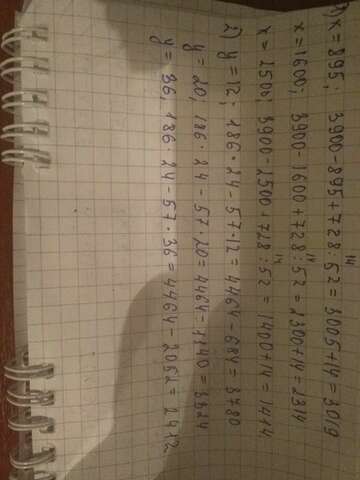 1) x=895; 3900-895+728:52=3005+14=3019
14
x=1600; 3900-1600+728:52=2300+14=2314
14
x=2500; 3900-2500+728:52=1400+14=1414
14
2) y=12; 186·24-57·12=4464-684=3780
y=20; 186·24-57·20=4464-1140=3324
y=36; 186·24-57·36=4464-2052=2412